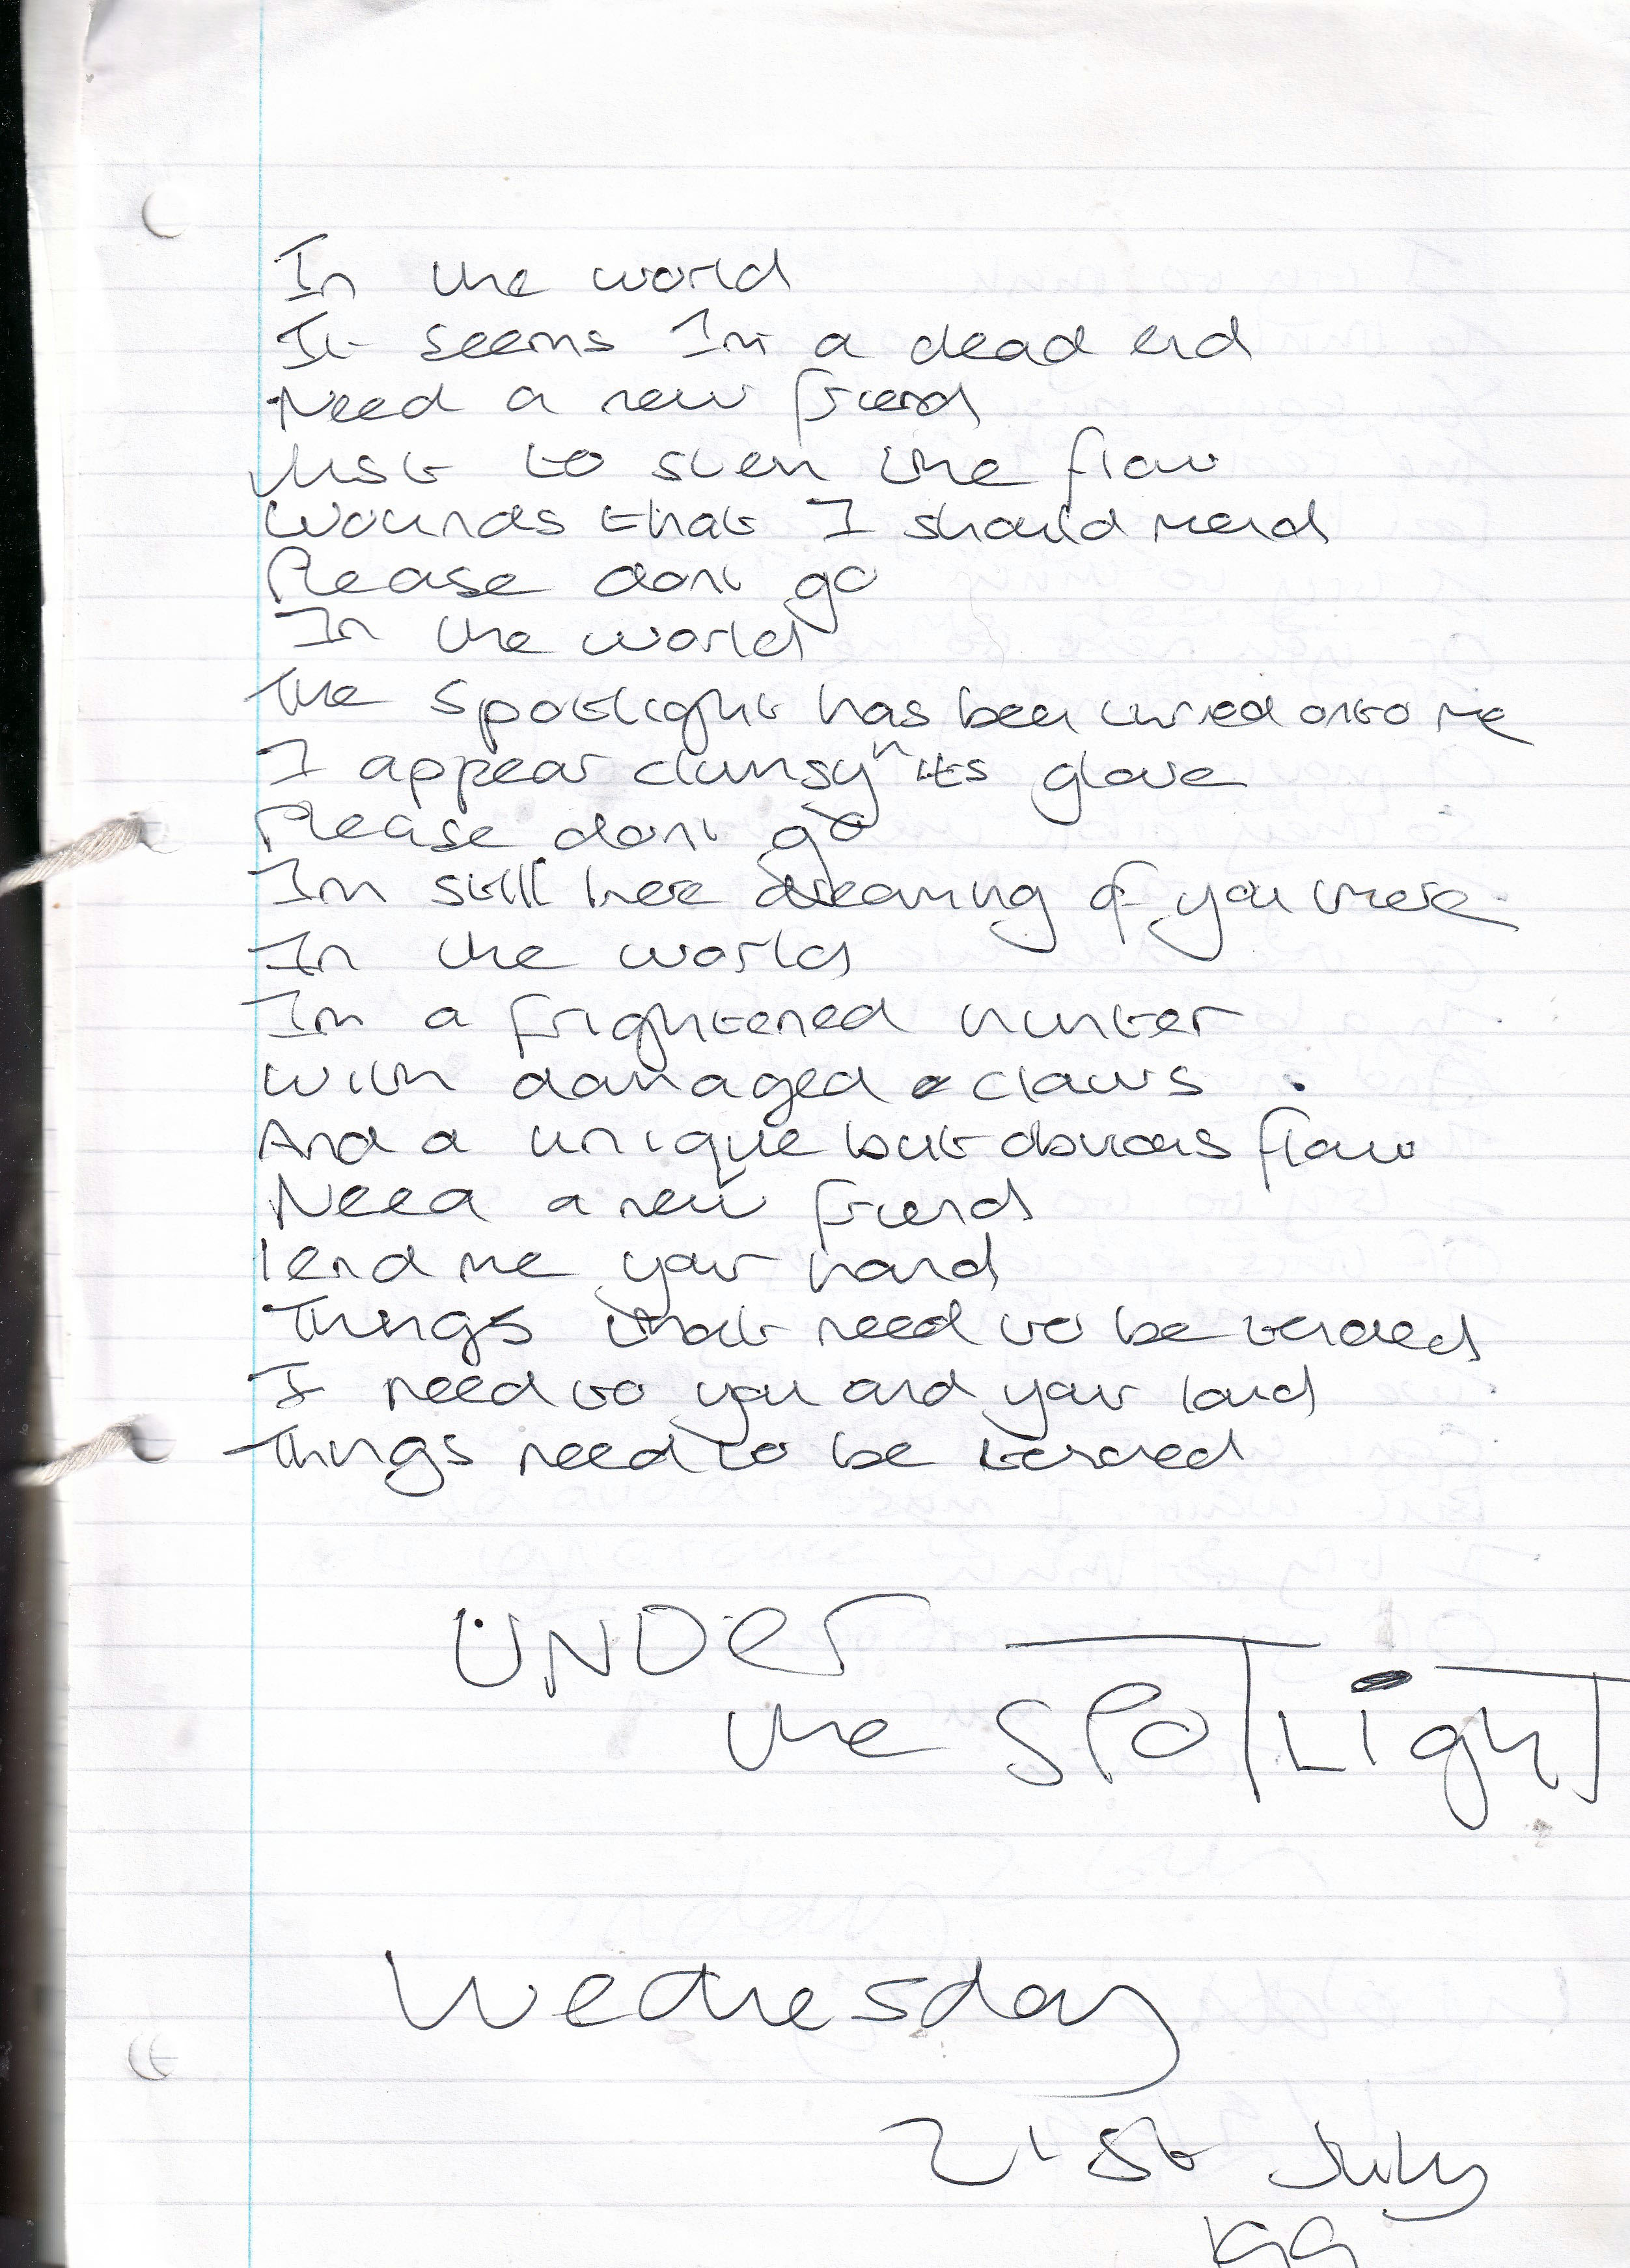 In the world
It seems Im a dead end
Need a new friend
Just to stem the flow
Wounds that I should mend
Please dont go
In the world
The spotlight has been turned onto me
I appear clumsy in its glare
Please dont go
Im still here dreaming of you there
In the world
Im a frightened hunter
With damaged claws
And a unique but obvious flaw
Need a new friend
lend me your hand
Things that need to be tended
I need to you and your land
Things need to be tended
UNDer
the SPOTLighT
Wednesday
21st July